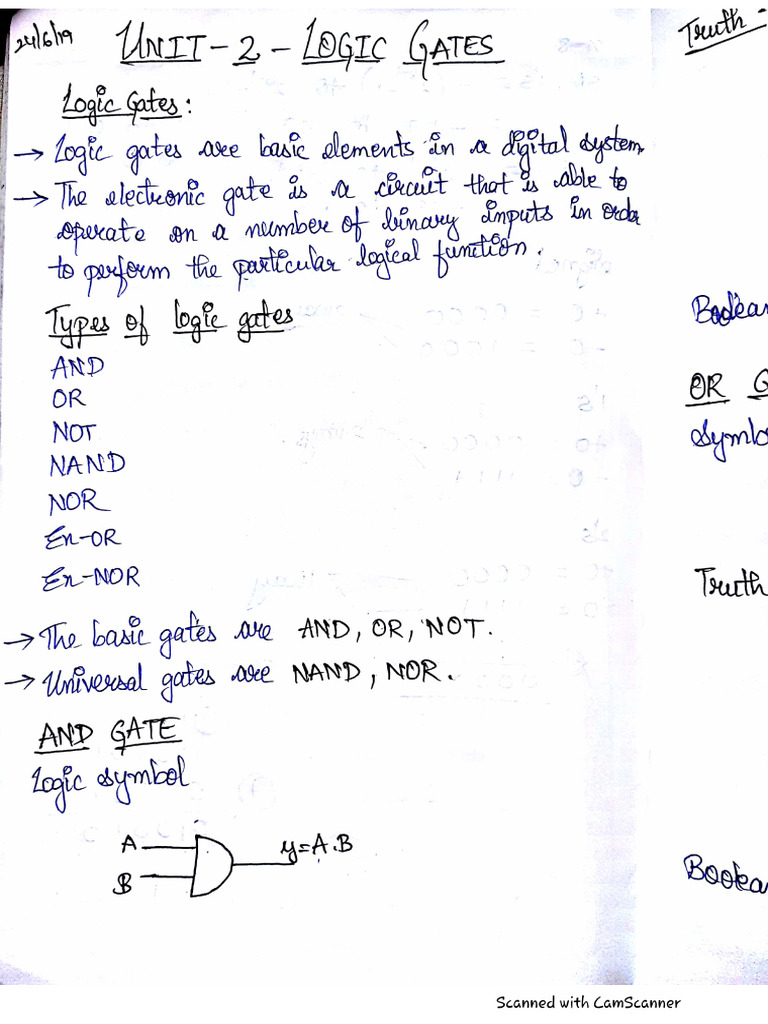 24/6/19
UNIT-2-LOGIC GATES
Logic Gates:
→ Logic gates are basic elements in a digital system.
→ The electronic gate is a circuit that is able to
operate on a number of binary inputs in order
to perform the particular logical function.
Types of logic gates
AND
OR
NOT
NAND
NOR
Ex-OR
Ex-NOR
→ The basic gates are AND, OR, NOT.
→ Universal gates are NAND, NOR.
AND GATE
Logic symbol
A
y=A.B
B
Truth
Boolean
OR G
Symbo
Truth
Boolea
Scanned with CamScanner